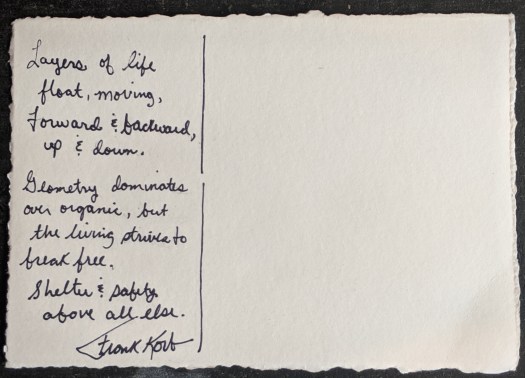 Layers of life
float, moving,
Forward & backward,
up & down.
Geometry dominates
over organic, but
the living strives to
break free.
Shelter & safety
above all else.
Frank Korb